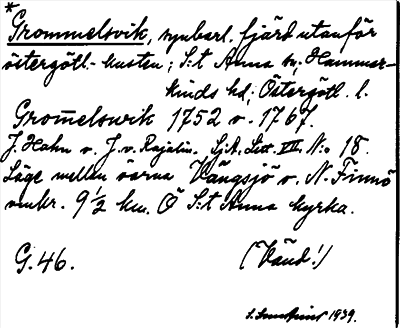 *
Grommelsvik, uppenbarl. fjärd utanför
östergötl.-kusten; S:t Anna sn; Hammer-
kinds hd; Östergötl. l.
Grom̄elswik 1752 o. 1767.
J. Hahn o. J. v. Rajalin. Sj.A. Litt. VII. N:o 18.
Läge mellan öarna Vängsjö o. N. Finnö
omkr. 9½ km. Ö S:t Anna kyrka.
G.46.
(Vänd!)
1939.